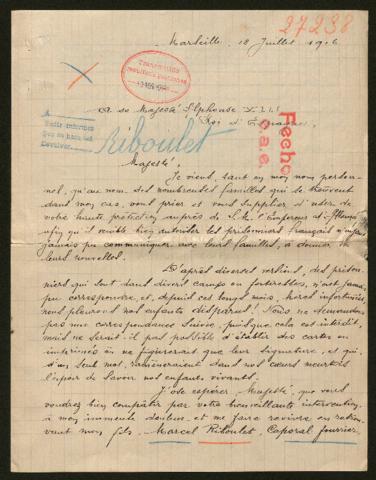 27238
Marseille, 18 Juillet 1916
A sa Majesté Alphonse XIII
Roi d'Espagne,
Riboulet
Fecho
c.a.e.
Majesté,
Je viens, tant en mon nom person-
nel, qu'au nom des nombreuses familles qui se trouvent
dans mon cas, vous prier et vous supplier d'user de
votre haute protection auprès de S. M. l'Empereur d'Allemagne
afin qu'il veuille bien autoriser les prisonniers français n'ayant
jamais pu communiquer avec leurs familles, à donner de
leurs nouvelles.
D'après diverses versions, des prison-
niers qui sont dans divers camps ou forteresses, n'ont jamais
pu correspondre, et, depuis ces longs mois, hélas infortunés,
nous pleurons nos enfants disparus! Nous ne demandons
pas une correspondance suivie, puisque cela est interdit,
mais ne serait-il pas possible d'établir des cartes ou
imprimés où ne figurerait que leur signature, et qui,
d'un seul mot, ramèneraient dans nos cœurs meurtris
l'espoir de savoir nos enfants vivants.
J'ose espérer, Majesté, que vous
voudrez bien compatir par votre bienveillante intervention,
à mon immense douleur, et me faire revivre en retrou-
vant mon fils, Marcel Riboulet, Caporal fourrier